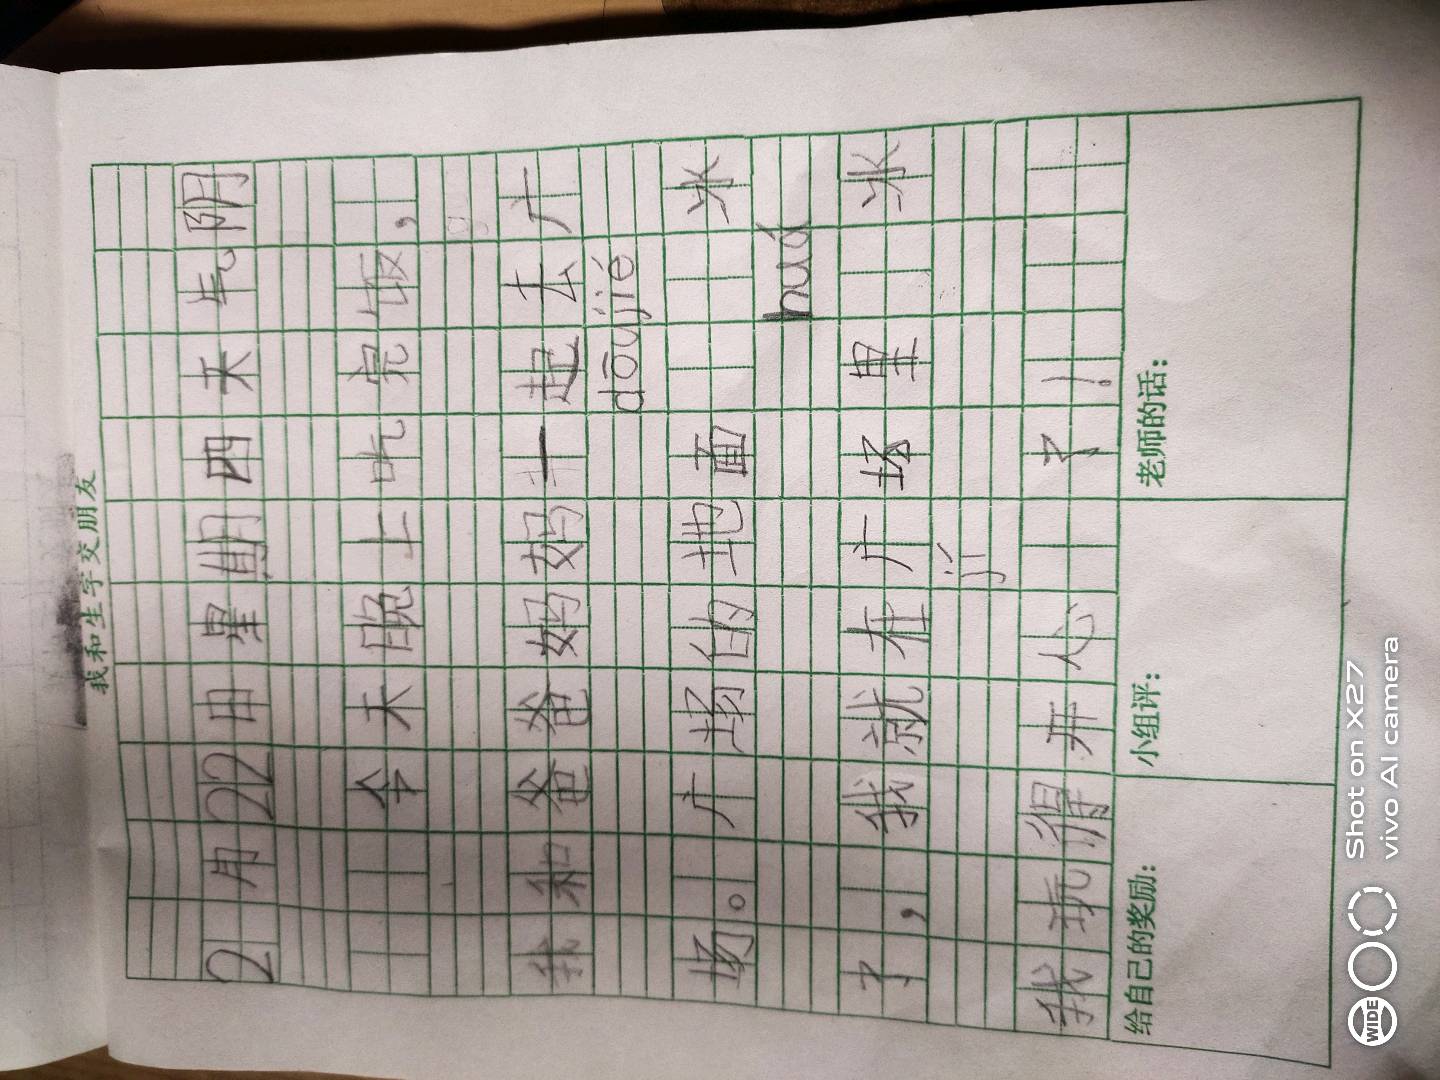 我和生字交朋友
2月22日星期四天气阴
今天晚上吃完饭，
我和爸爸妈妈一起去广
dōu jié
场。广场的地面 冰
huá
了，我就在广场里 冰
我玩得开心 了！
给自己的奖励：
小组评：
老师的话：
WIDE
Shot on X27
vivo AI camera